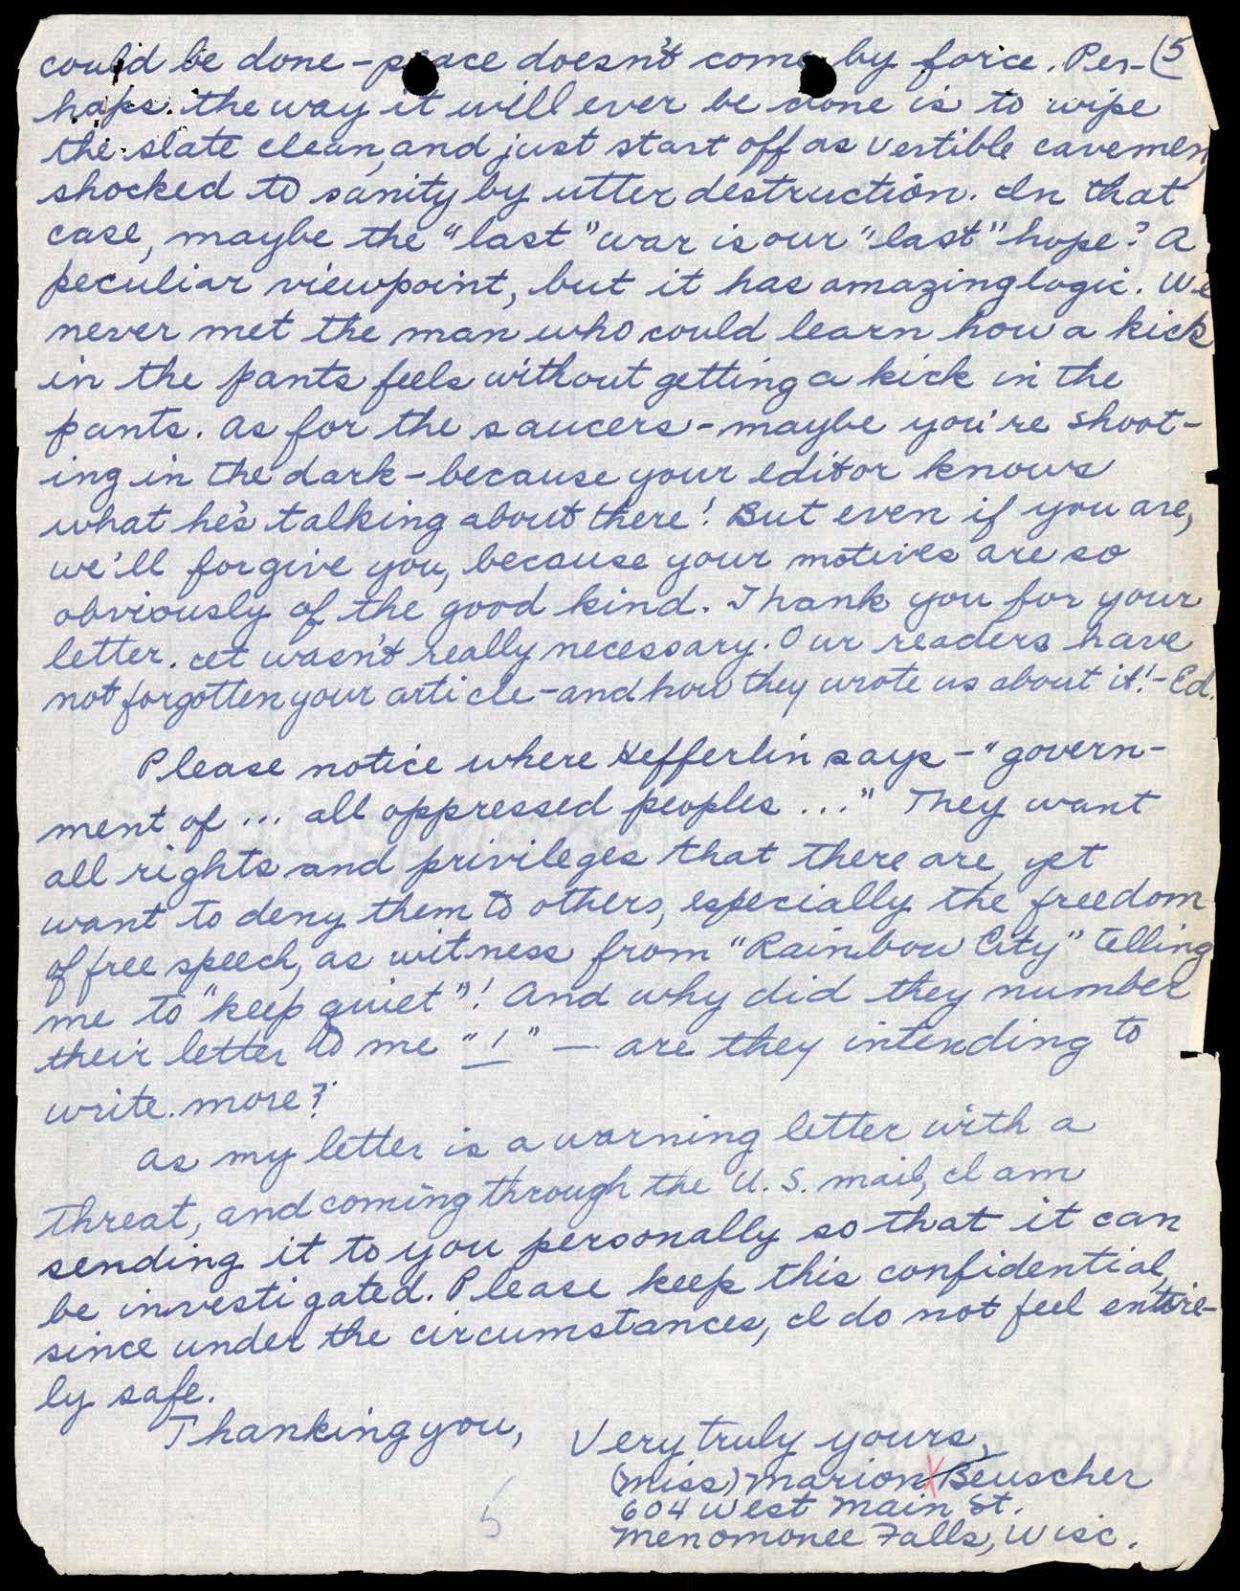 could be done – peace doesn't come by force. Per- (5
haps the way it will ever be done is to wipe
the slate clean, and just start off as vertible cavemen,
shocked to sanity by utter destruction. In that
case, maybe the "last" war is our "last" hope? A
peculiar viewpoint, but it has amazing logic. We
never met the man who could learn how a kick
in the pants feels without getting a kick in the
pants. As for the saucers – maybe you're shoot-
ing in the dark – because your editor knows
what he's talking about there! But even if you are,
we'll forgive you, because your motives are so
obviously of the good kind. Thank you for your
letter. It wasn't really necessary. Our readers have
not forgotten your article – and how they wrote us about it! – Ed.
Please notice where Hefferlin says – "govern-
ment of ... all oppressed peoples ..." They want
all rights and privileges that there are, yet
want to deny them to others, especially the freedom
of free speech, as witness from "Rainbow City" telling
me to "keep quiet"! And why did they number
their letter to me "1" — are they intending to
write more?
As my letter is a warning letter with a
threat, and coming through the U.S. mail, I am
sending it to you personally so that it can
be investigated. Please keep this confidential,
since under the circumstances, I do not feel entire-
ly safe.
Thanking you,
Very truly yours,
(Miss) Marion X Beuscher
604 West Main St.
Menomonee Falls, Wisc.
5